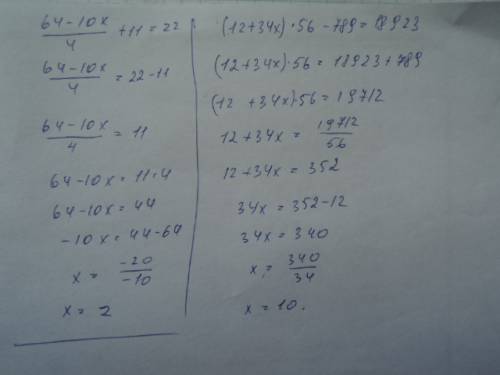 (64-10x)/4 + 11 = 22
(64-10x)/4 = 22-11
(64-10x)/4 = 11
64-10x = 11·4
64-10x = 44
-10x = 44-64
x = -20/-10
x = 2
(12+34x)·56-789=18923
(12+34x)·56 = 18923+789
(12+34x)·56 = 19712
12+34x = 19712/56
12+34x = 352
34x = 352-12
34x = 340
x = 340/34
x = 10.